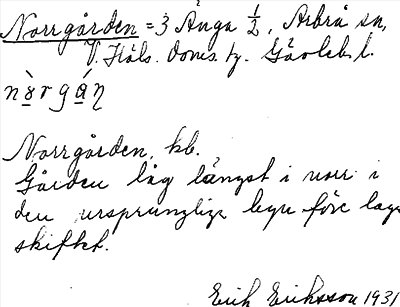 Norrgården = 3 Änga 1/2, Arbrå sn,
V. Häls. doms. tg. Gävleb. l.
nòrgán
Norrgården, kb.
Gården låg längst i norr i
den ursprunglige byn före laga
skiftet.
Erik Eriksson 1931